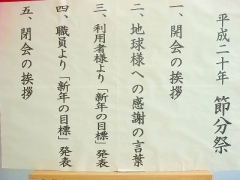 平成二十年 節分祭
一、開会の挨拶
二、地球様への感謝の言葉
三、利用者様より「新年の目標」発表
四、職員より「新年の目標」発表
五、閉会の挨拶